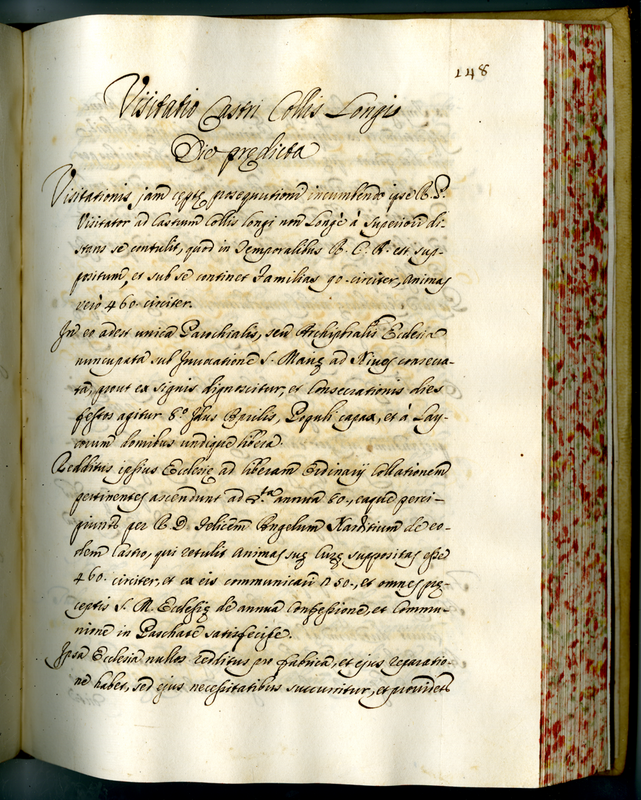 148
Visitatio Castri Collis Longi
Die predicta
Visitationis jam ceptę prosequutioni incumbendo ipse R. P.
Visitator ad Castrum Collis longi non Longè à Superiori di-
stans se contulit, quod in Temporalibus R. C. A. est sup-
positum, et sub se continet Familias 90. circiter, Animas
verò 460. circiter.
In eo adest unica Parochialis, seu Archipħalis Ecclesia
nuncupata sub Invocatione S. Marię ad Nives consecra-
ta, prout ex signis dignoscitur, et Consecrationis dies
festos agitur 8.º Idus Aprilis, Populi capax, et à Lay-
corum domibus undique libera.
Redditus ipsius Ecclesię ad liberam Ordinarij Collationem
pertinentes ascendunt ad annua 60., eaque perci-
piunt per R. D. Felicem Angelum de eo-
dem Castro, qui retulit Animas suę Curę suppositas esse
460. circiter, et ex eis communicari 50., et omnes prę-
ceptis S. M. Ecclesię de annua Confessione, et Commu-
nione in Paschate satisfecisse.
Ipsa Ecclesia nullos redditus pro fabrica, et ejus reparatio-
ne habet, sed ejus necessitatibus succurritur, et providet